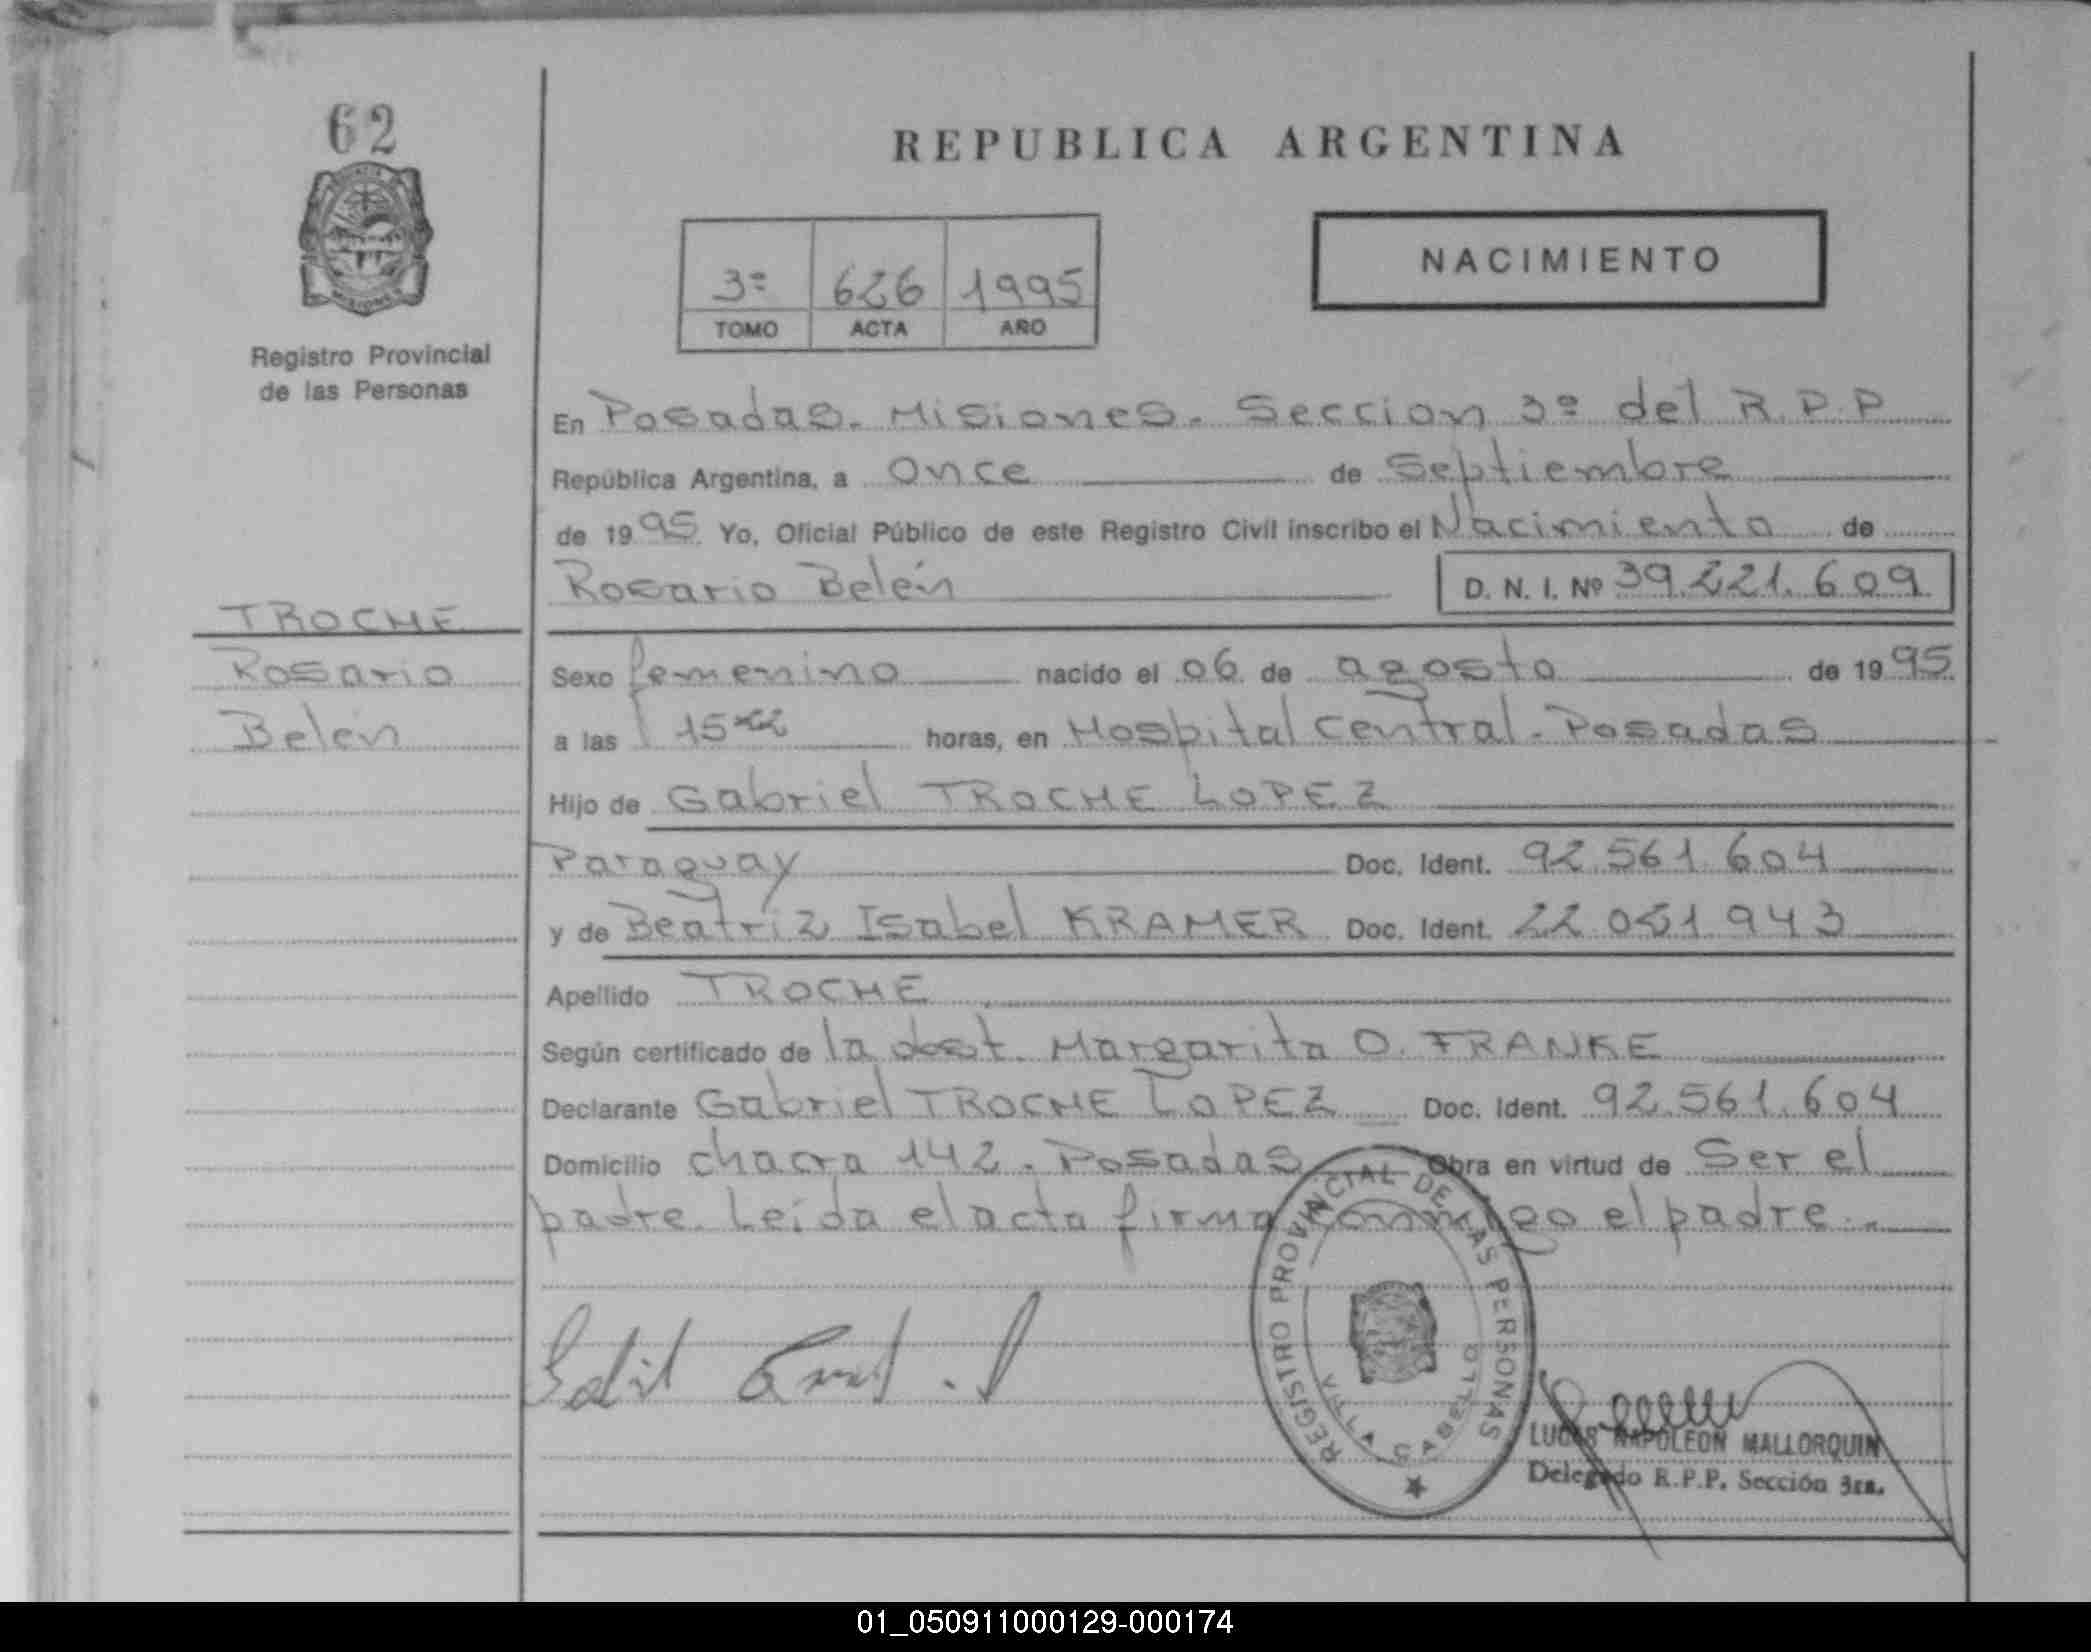 62
REPUBLICA ARGENTINA
NACIMIENTO
3º 626 1995
TOMO ACTA AÑO
Registro Provincial
de las Personas
En Posadas. Misiones. Seccion 3º del R.P.P
República Argentina, a once de Septiembre
de 1995 Yo, Oficial Público de este Registro Civil inscribo el Nacimiento de
Rosario Belén D. N. I. Nº 39.221.609
TROCHE
Rosario
Belén
Sexo femenino nacido el 06 de agosto de 1995
a las 15 horas, en Hospital Central. Posadas
Hijo de Gabriel TROCHE LOPEZ
Paraguay Doc. Ident. 92.561.604
y de Beatríz Isabel KRAMER Doc. Ident. 22.021.943
Apellido TROCHE
Según certificado de la Margarita O. FRANKE
Declarante Gabriel TROCHE LOPEZ Doc. Ident. 92.561.604
Domicilio chacra 142. Posadas Obra en virtud de Ser el
padre. Leída el acta firma conmigo el padre.
REGISTRO PROVINCIAL DE LAS PERSONAS
VILLA CABELLO
LUCAS NAPOLEON MALLORQUIN
Delegado R.P.P. Sección 3ra.
01_050911000129-000174